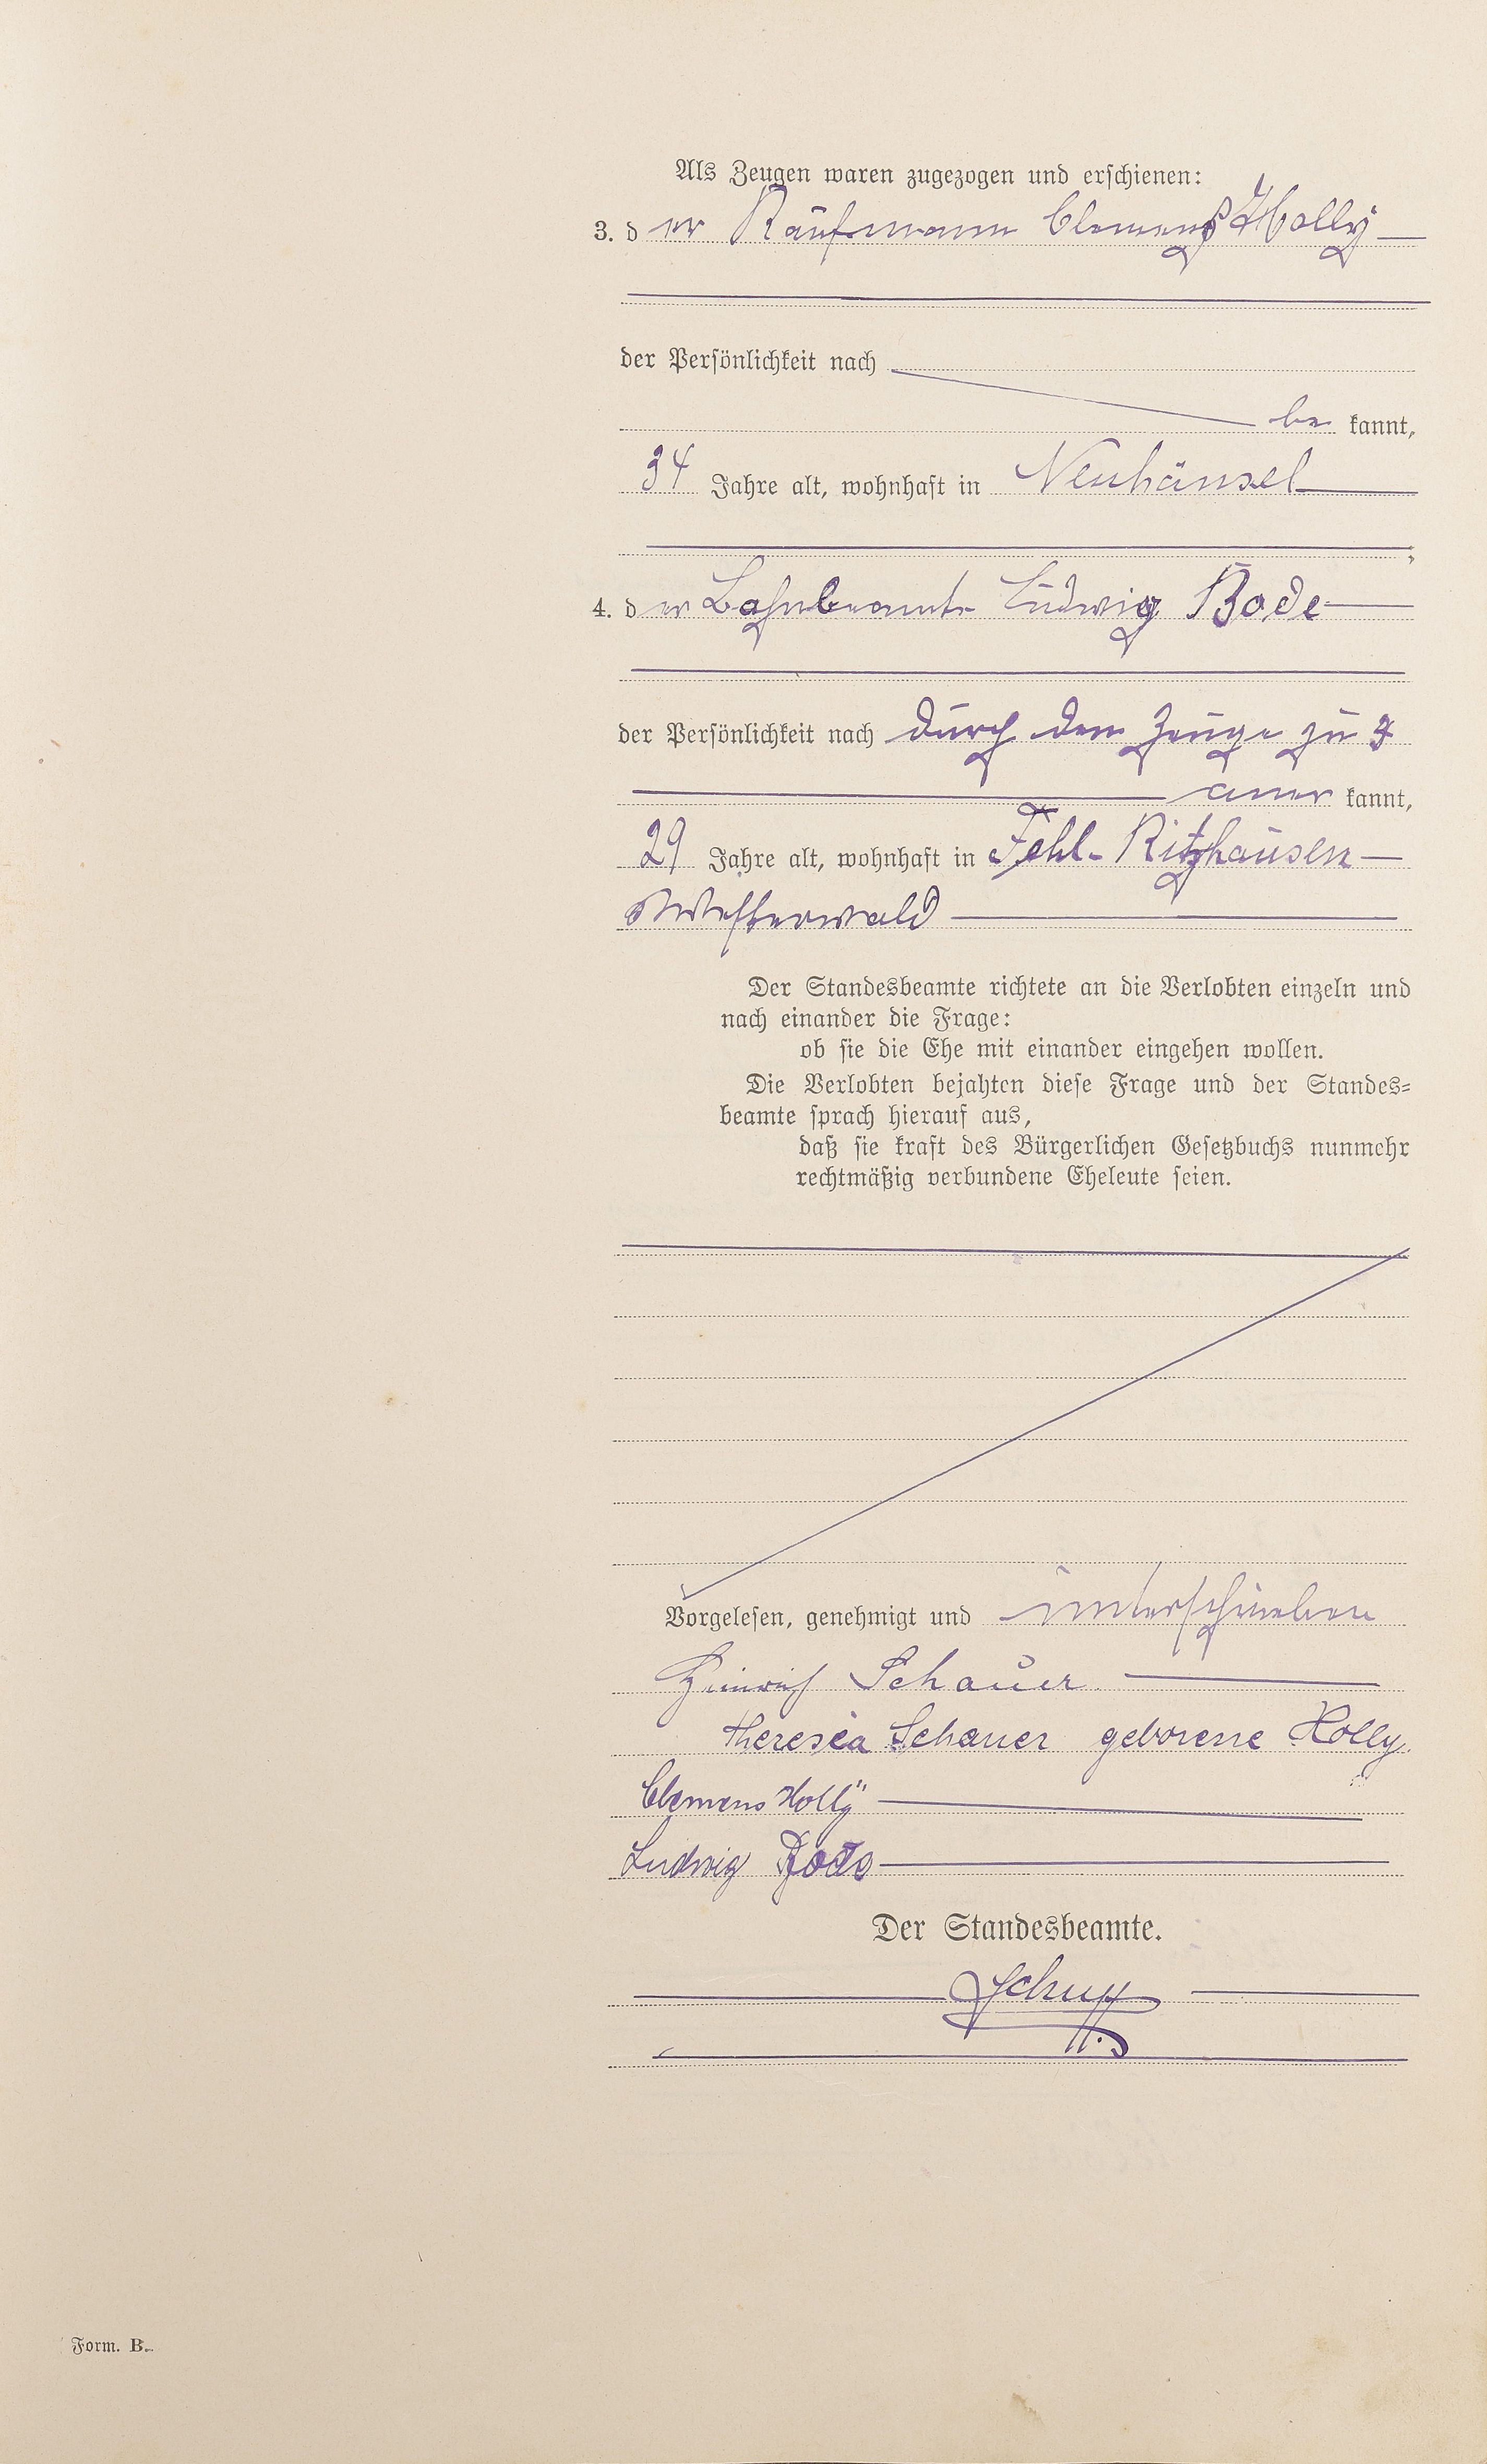 Als Zeugen waren zugezogen und erschienen:
3. der Kaufmann Clemens Holly
der Persönlichkeit nach
be kannt,
34 Jahre alt, wohnhaft in Neuhäusel
;
4. der Bahnbeamte Ludwig Bode
der Persönlichkeit nach durch den Zeuge zu 3
aner kannt,
29 Jahre alt, wohnhaft in Fehl-Ritzhausen
Westerwald
Der Standesbeamte richtete an die Verlobten einzeln und
nach einander die Frage:
ob sie die Ehe mit einander eingehen wollen.
Die Verlobten bejahten diese Frage und der Standes=
beamte sprach hierauf aus,
daß sie kraft des Bürgerlichen Gesetzbuchs nunmehr
rechtmäßig verbundene Eheleute seien.
Vorgelesen, genehmigt und unterschrieben
Heinrich Schauer
Theresia Schauer geborene Holly.
Clemens Holly
Ludwig Bode
Der Standesbeamte.
Schupp
Form. B.